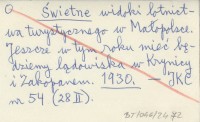 O Świetne widoki lotnict-
wa turystycznego w Małopolsce.
Jeszcze w tym roku mieć bę-
dziemy lądowiska w Krynicy
i Zakopanem. 1930. — IKC
nr 54 (28 II).